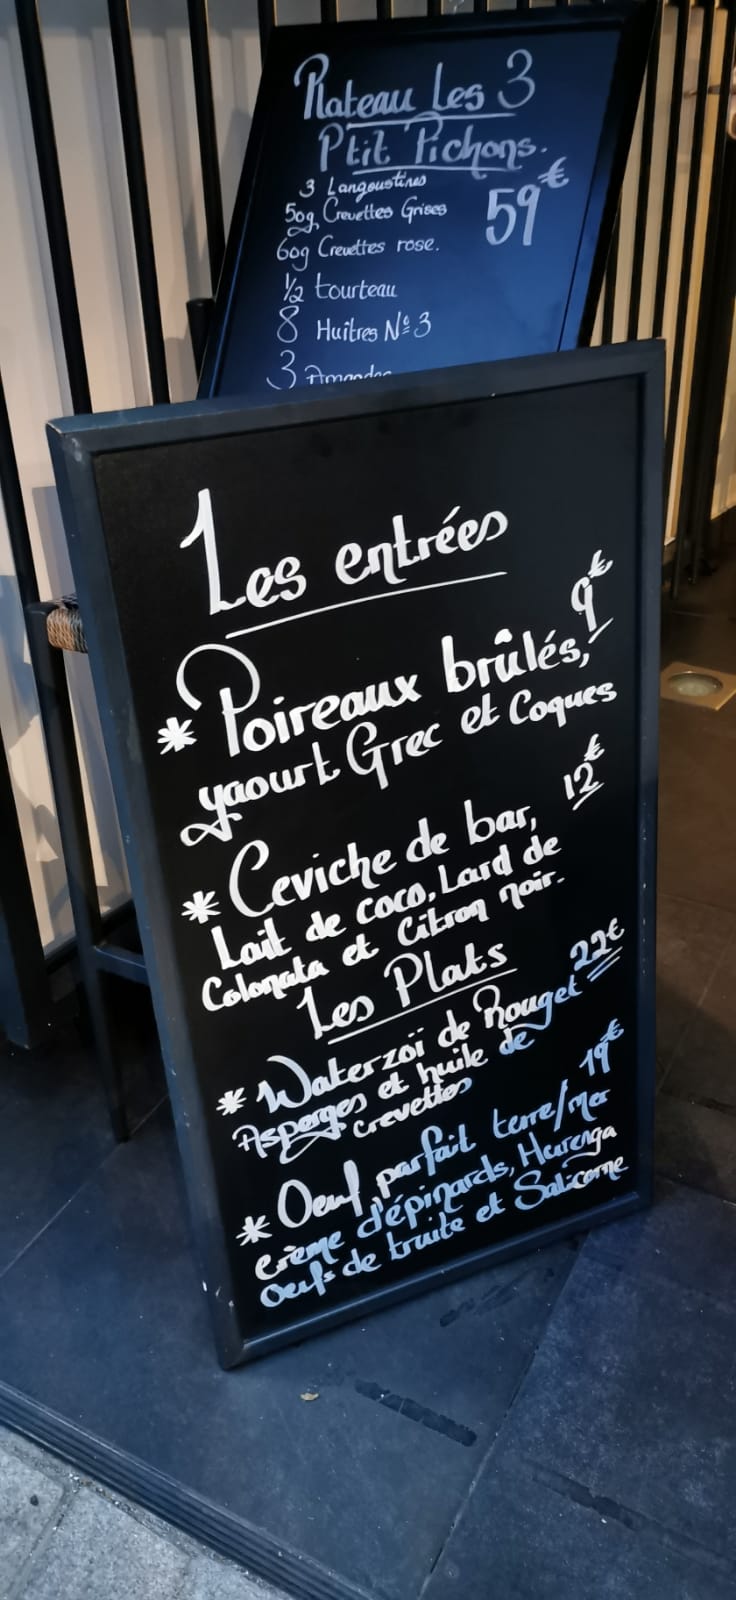 Plateau Les 3
P'tit Pichons.
3 Langoustines
50g Crevettes Grises
59€
60g Crevettes rose.
1/2 tourteau
8 Huîtres N° 3
3 Amandes
Les entrées
9€
* Poireaux brûlés,
yaourt Grec et Coques
12€
* Ceviche de bar,
Lait de coco, Lard de
Colonata et Citron noir.
Les Plats
22€
* Waterzoï de Rouget
Asperges et huile de
crevettes
19€
* Oeuf parfait terre/mer
crème d'épinards, Harenga
Oeufs de truite et Salicorne